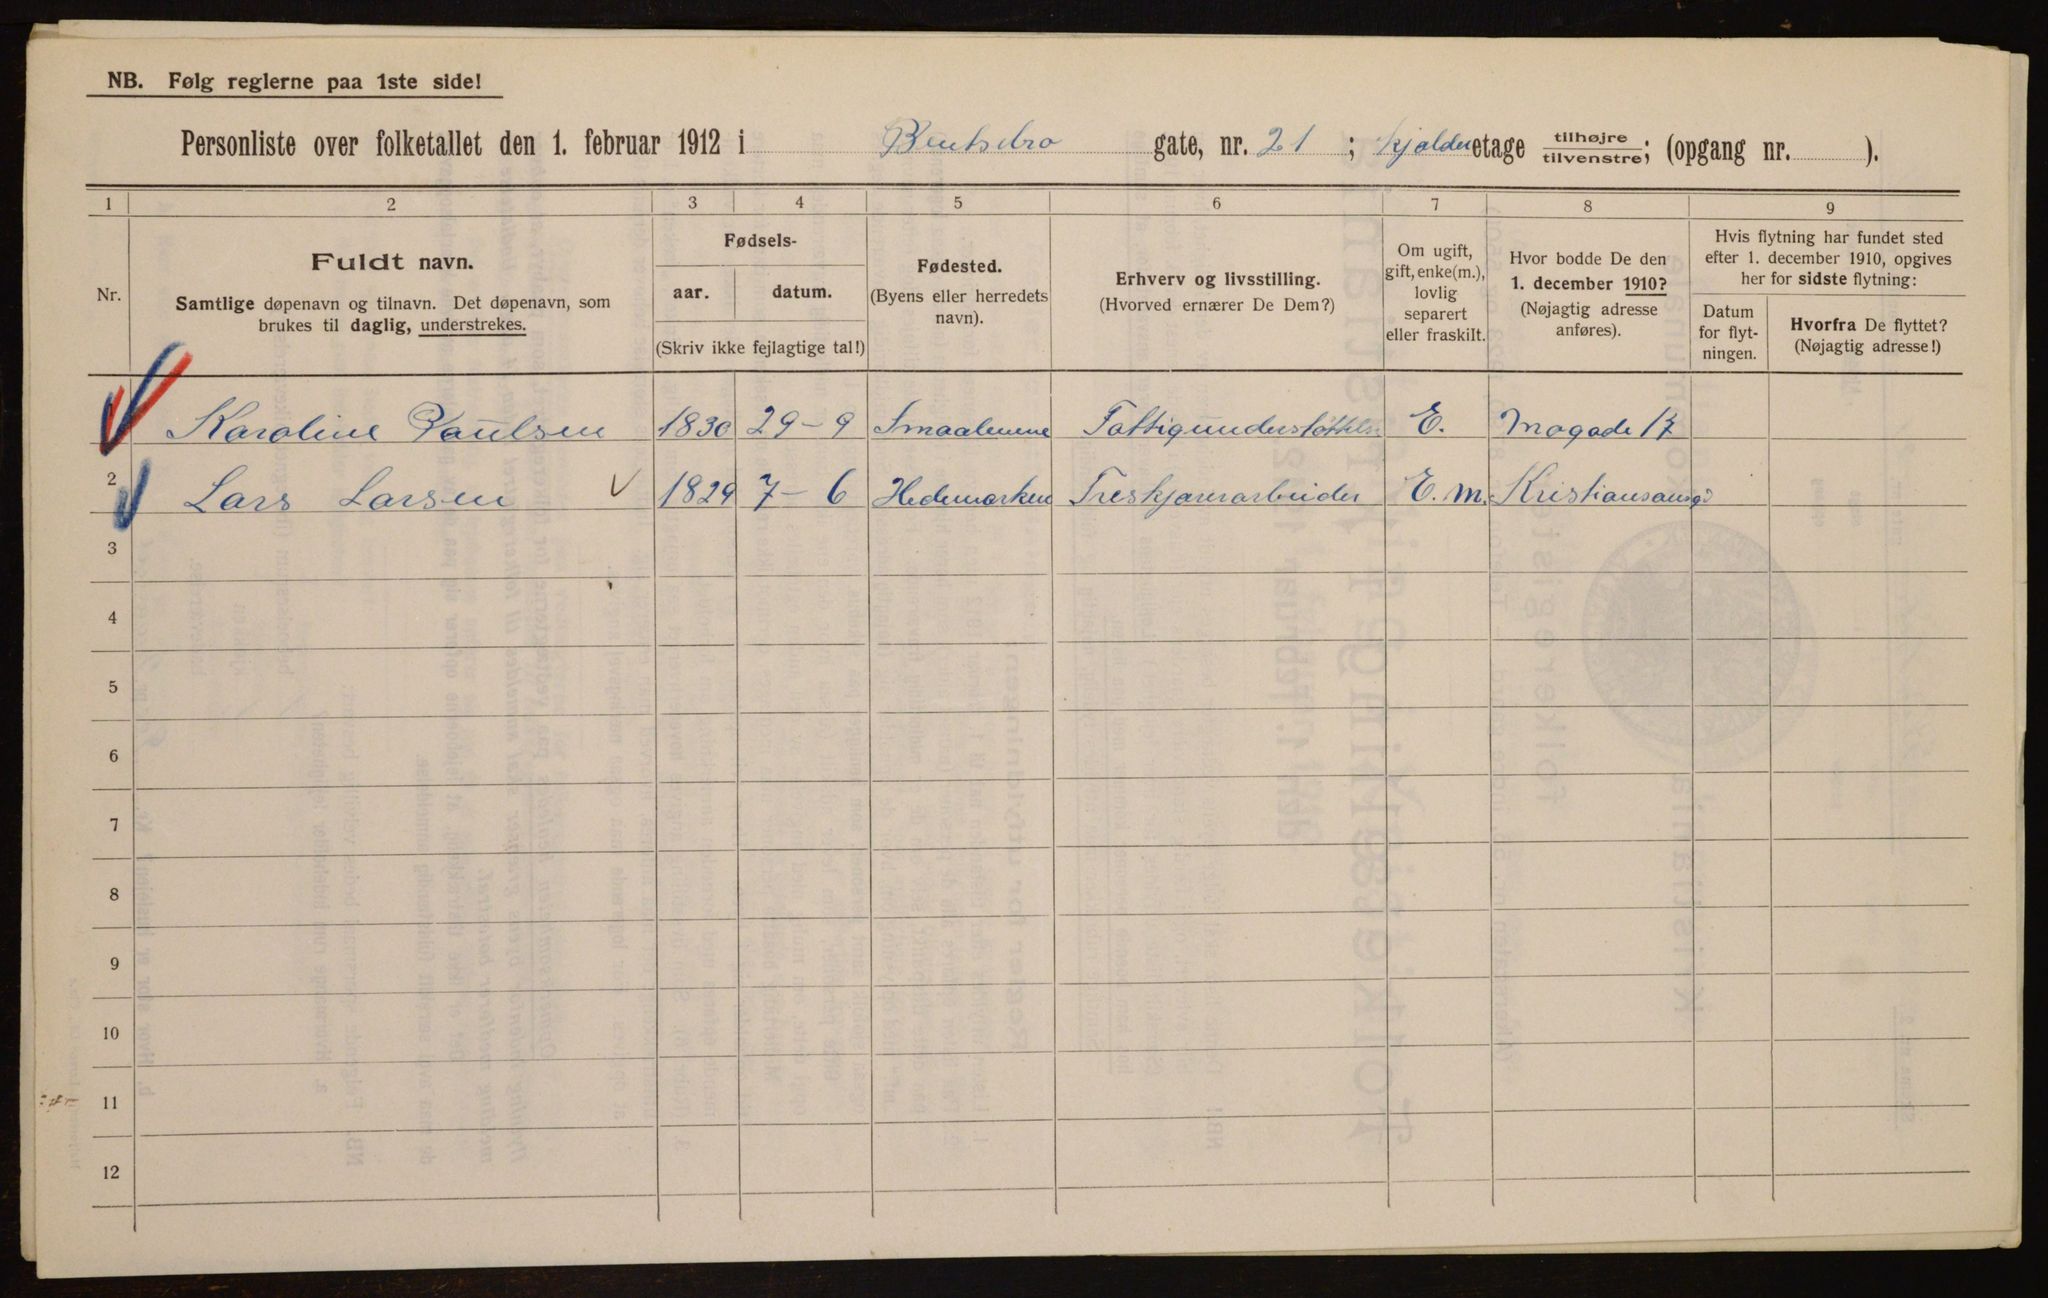 NB. Følg reglerne paa 1ste side!
Personliste over folketallet den 1. februar 1912 i Bentsebro gate, nr. 21 ; kjelder etage tilhøjre tilvenstre; (opgang nr. ).
1 2 3 4 5 6 7 8 9
Nr.
Fuldt navn.
Samtlige døpenavn og tilnavn. Det døpenavn, som
brukes til daglig, understrekes.
Fødsels-
aar. datum.
(Skriv ikke fejlagtige tal!)
Fødested.
(Byens eller herredets
navn).
Erhverv og livsstilling.
(Hvorved ernærer De Dem?)
Om ugift,
gift, enke(m.),
lovlig
separert
eller fraskilt.
Hvor bodde De den
1. december 1910?
(Nøjagtig adresse
anføres).
Hvis flytning har fundet sted
efter 1. december 1910, opgives
her for sidste flytning:
Datum
for flyt-
ningen.
Hvorfra De flyttet?
(Nøjagtig adresse!)
Karoline Paulsen 1830 29-9 Smaalenene Fattigunderstøttelse E. Mogade 17
2 Lars Larsen 1829 7-6 Hedemarken Treskjærerarbeider E. m. Kristiansansgd
3
4
5
6
7
8
9
10
11
12